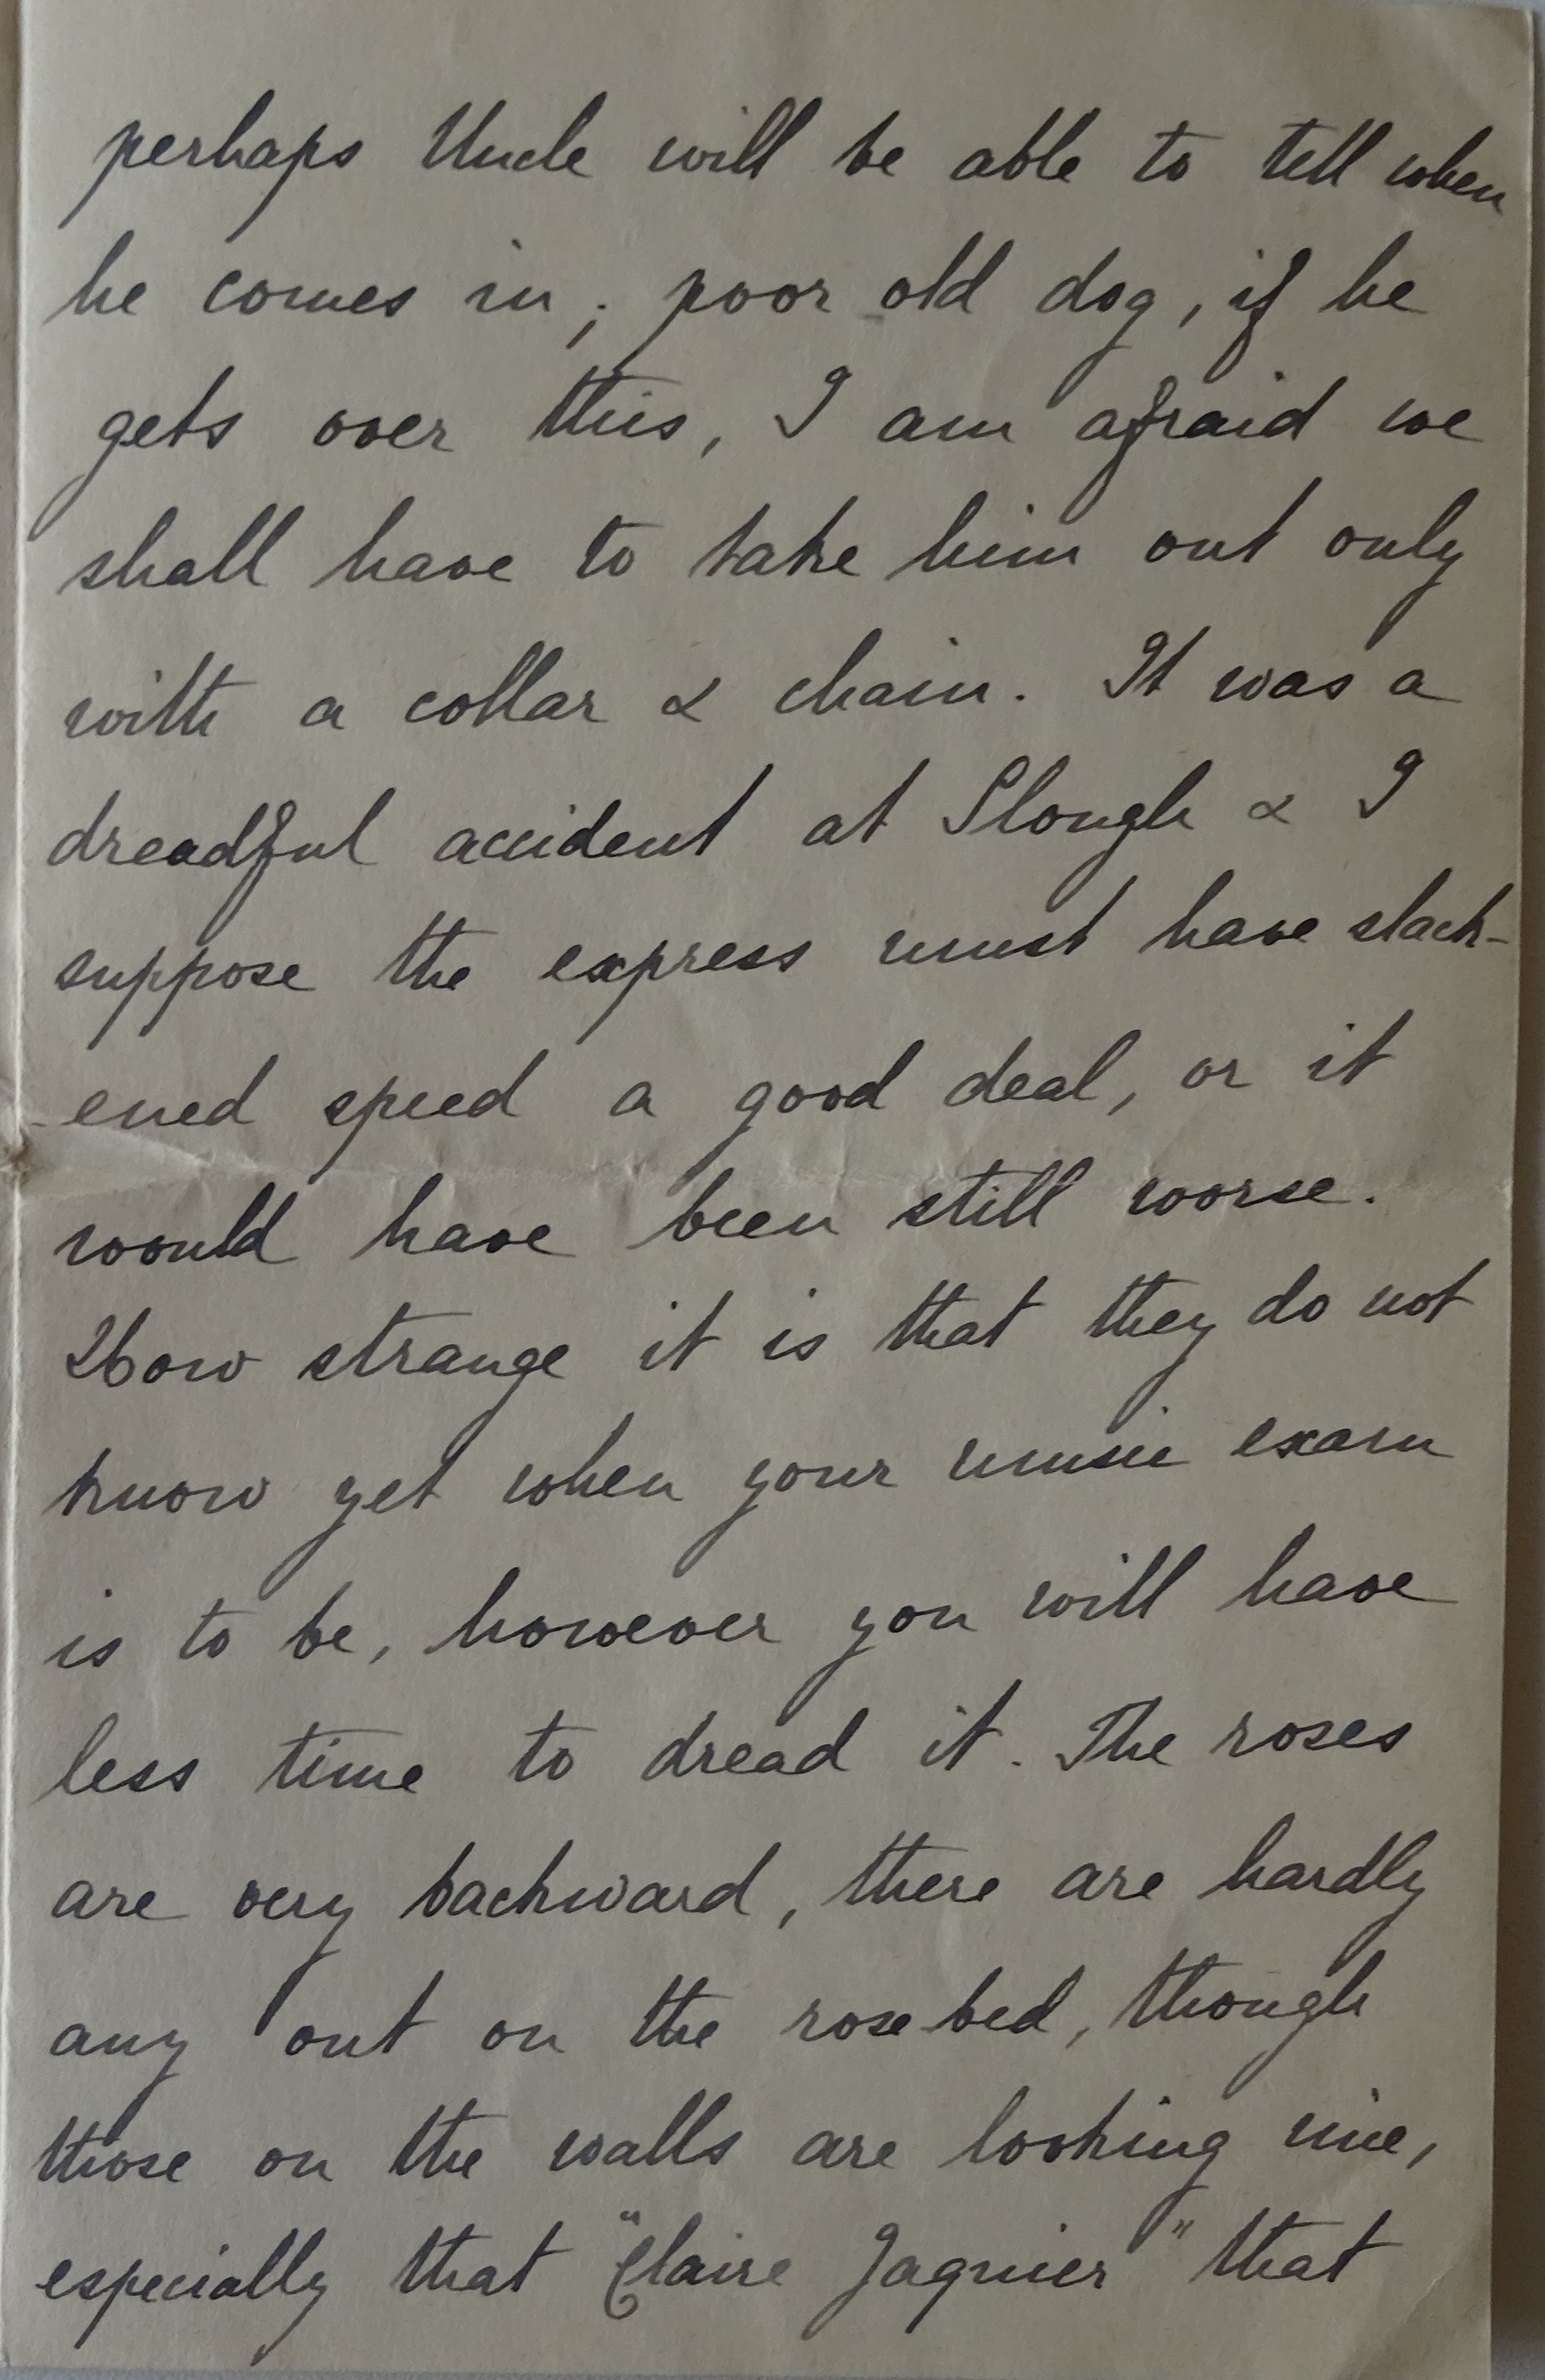 perhaps Uncle will be able to tell when
he comes in; poor old dog, if he
gets over this, I am afraid we
shall have to take him out only
with a collar & chain. It was a
dreadful accident at Slough & I
suppose the express must have slack-
-ened speed a good deal, or it
would have been still worse.
How strange it is that they do not
know yet when your music exam
is to be, however you will have
less time to dread it. The roses
are very backward, there are hardly
any out on the rose bed, though
those on the walls are looking nice,
especially that "Claire Jaquier" that